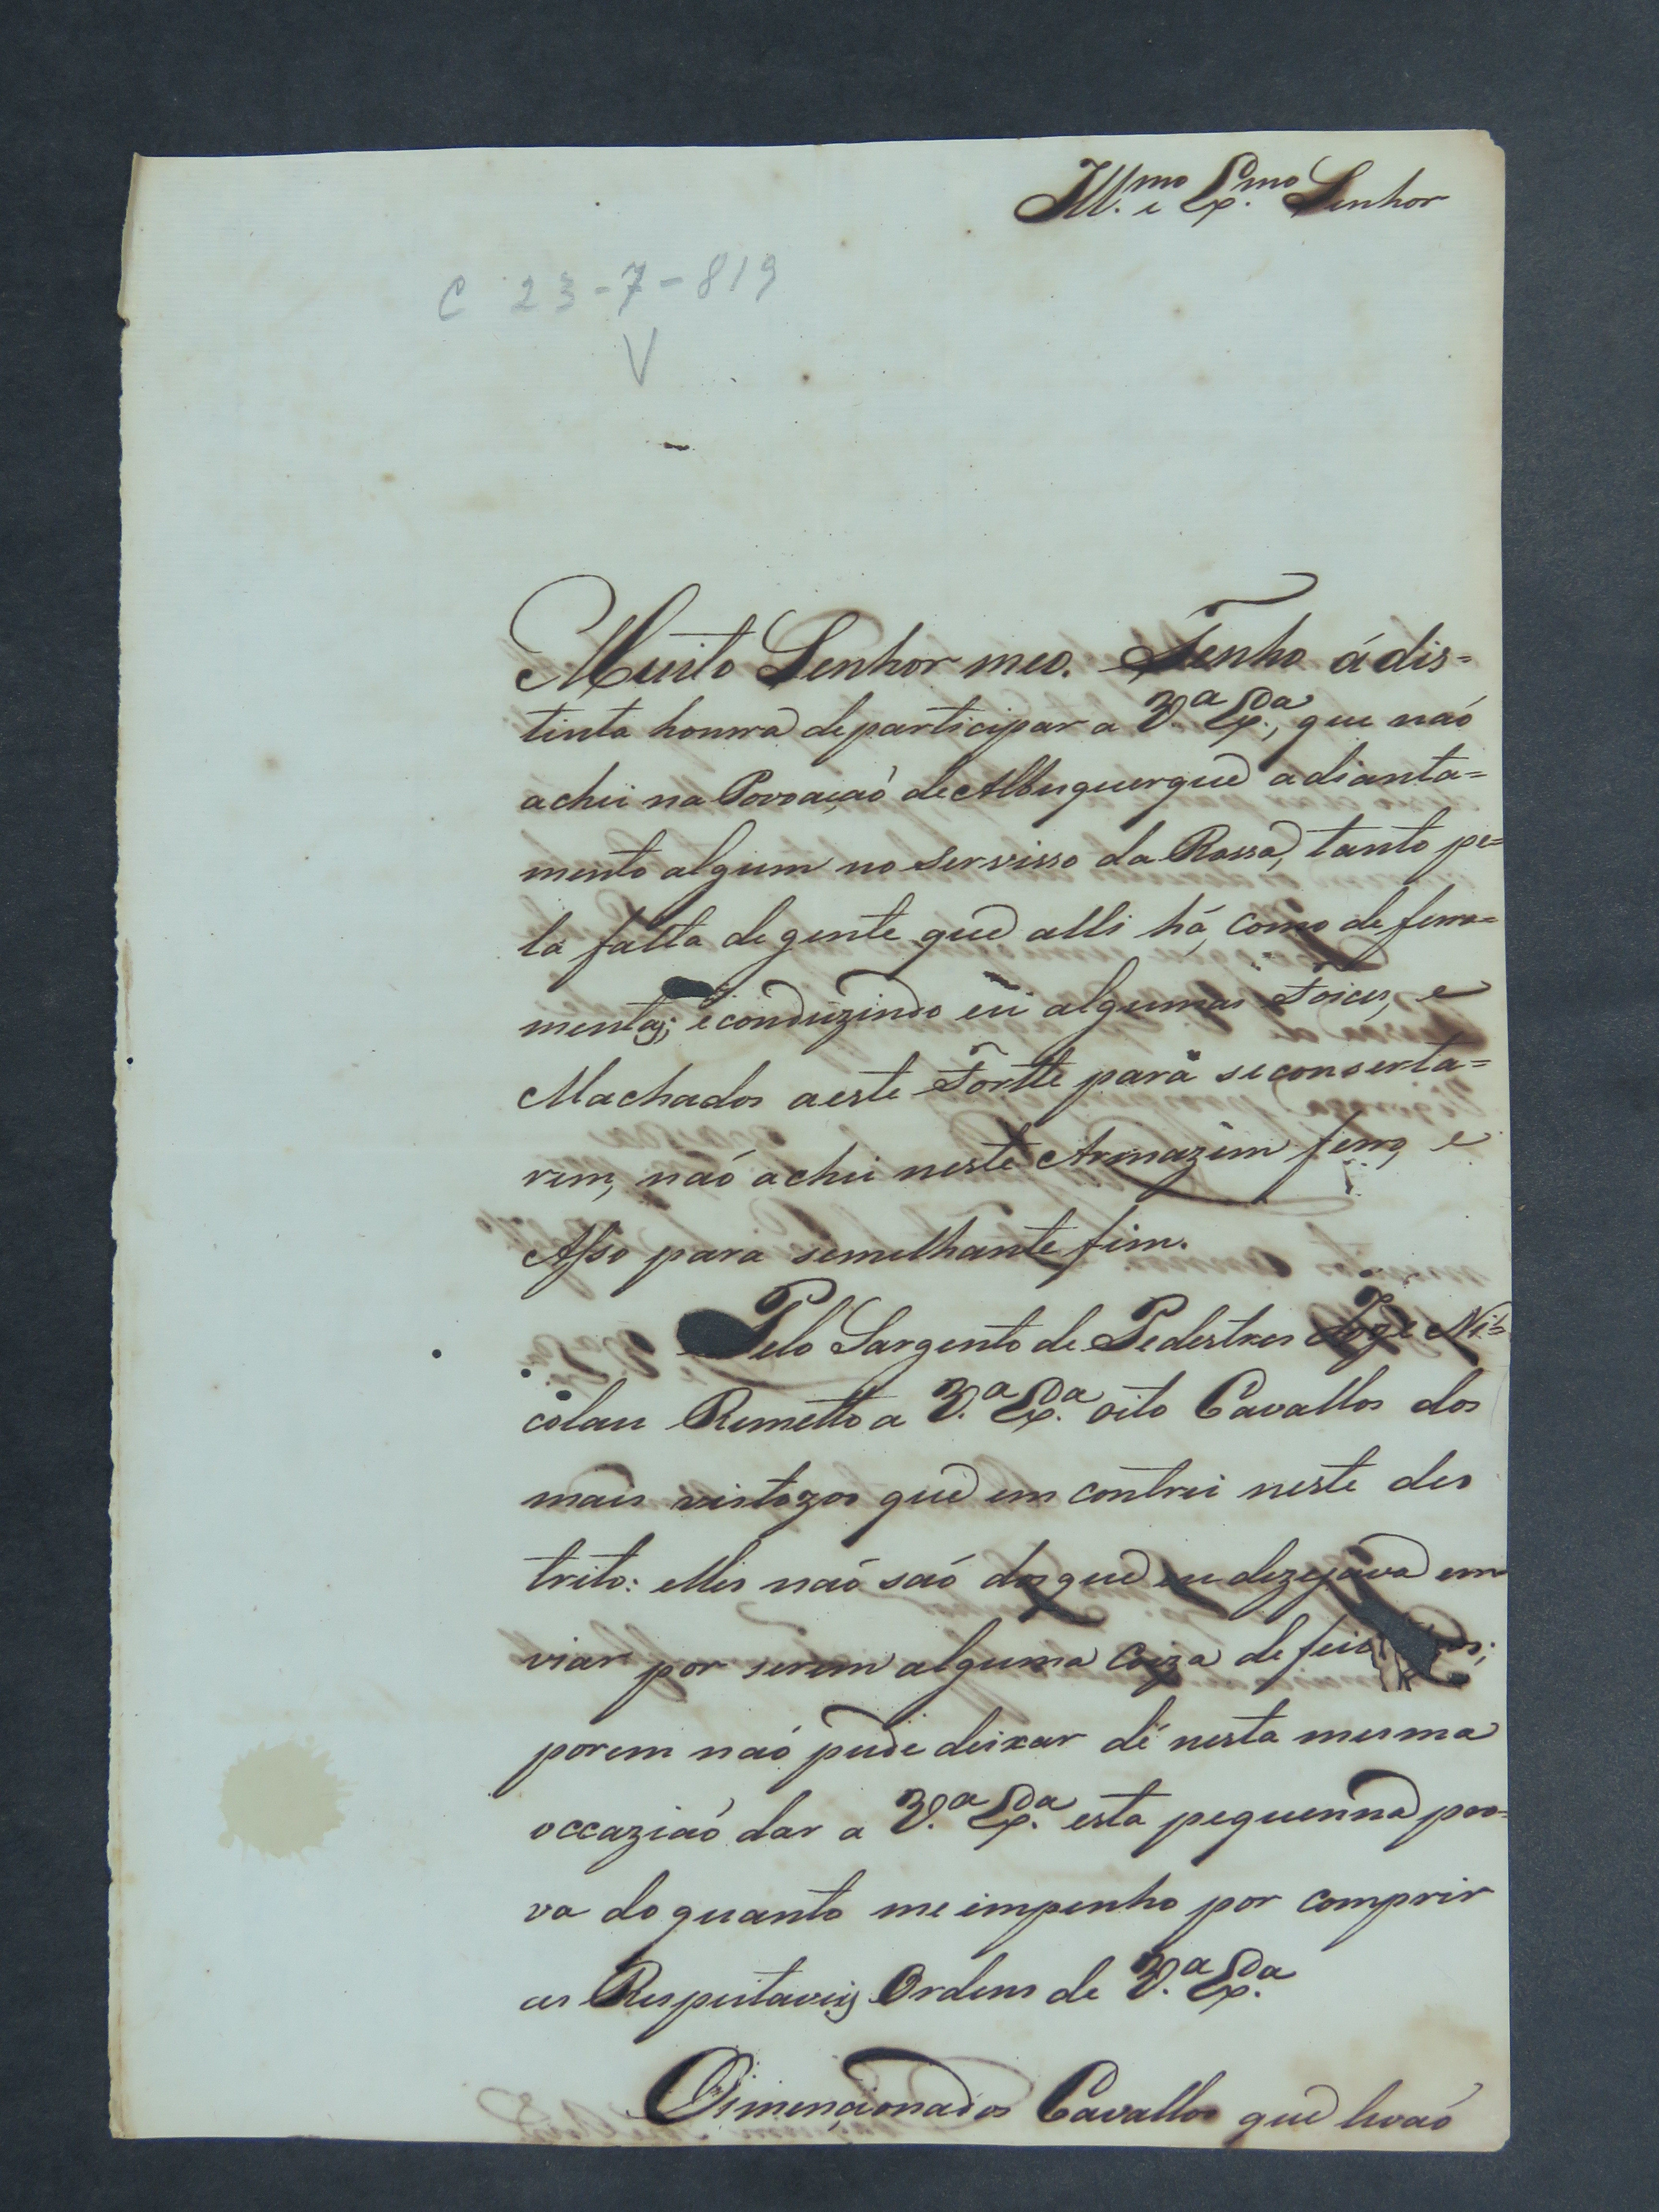 Ill.mo e Ex.mo Senhor
C 23-7-819
V
Muito Senhor meo. Tenho á dis=
tinta honrra de participar a V.a Ex.a, que naó
achei na Povoaçaó de Albuquerque adianta=
mento algum no servisso da Rossa, tanto pe=
la falta de gente que alli há, como de ferra=
mentas; e conduzindo eu algumas Foices, e
Machados a este Fortte para se conserta=
rem, naó achei neste Armazem ferro, e
Asso para semelhante fim.
Pelo Sargento de Pedestres Joze Ni=
colau Remetto a V.a Ex.a oito Cavallos dos
mais vistozos que em contrei neste des
trito: elles naó saó dos que eu dezejava em
viar por serem alguma coiza
porem naó pude deixar de nesta mesma
occaziaó dar a V.a Ex.a esta pequenna pro=
va do quanto me impenho por comprir
as Respeitaveis Ordens de V.a Ex.a
Os mencionados Cavallos que levaó